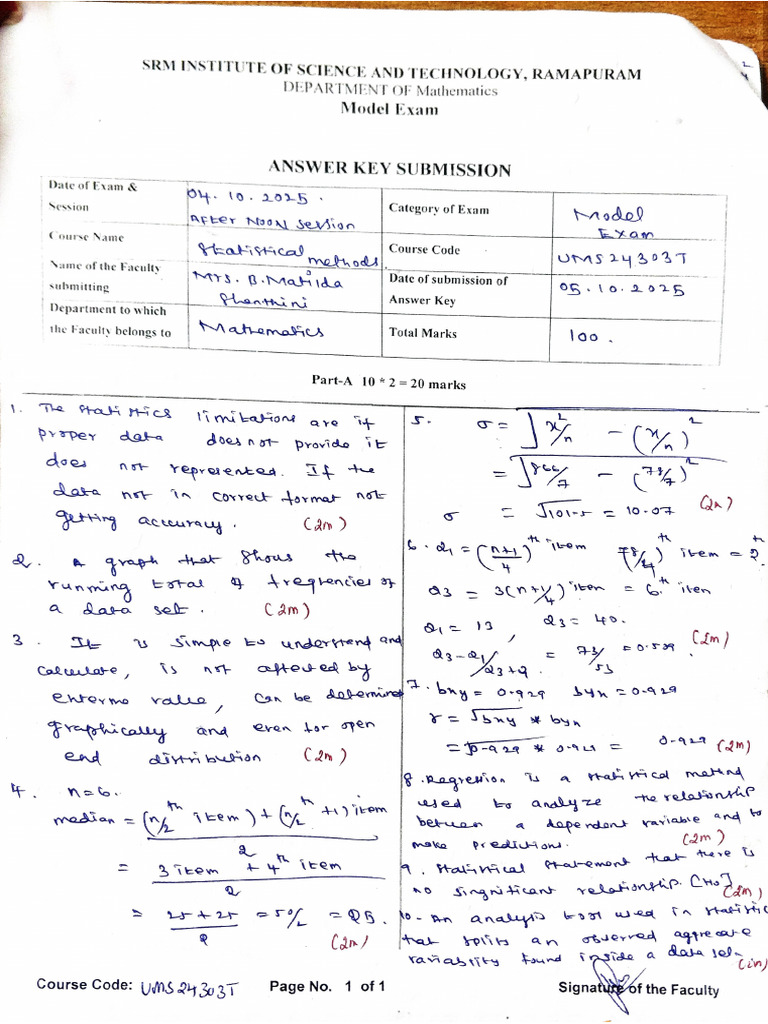 SRM INSTITUTE OF SCIENCE AND TECHNOLOGY, RAMAPURAM
DEPARTMENT OF Mathematics
Model Exam
ANSWER KEY SUBMISSION
Date of Exam & Session
04.10.2025.
AFter NOON Session
Category of Exam
Model Exam
Course Name
Statistical methods
Course Code
UMS24303T
Name of the Faculty submitting
Mrs. B. Matilda Shanthini
Date of submission of Answer Key
05.10.2025
Department to which the Faculty belongs to
Mathematics
Total Marks
100.
Part-A 10 * 2 = 20 marks
1. The Statistics limitations are if
proper data does not provide it
does not represented. If the
data not in correct format not
getting accuracy. (2m)
2. A graph that shows the
running total of freqtencies of
a data set. (2m)
3. It is simple to understand and
calculate, is not affected by
extermo value, can be determined
graphically and even for open
end distribution (2m)
4. n=6.
median = (n/2 th item) + (n/2 th +1) item
2
= 3 item + 4th item
2
= 25 + 25 = 50/2 = 25.
2
(2m)
5. σ = √x²/n - (x/n)²
= √866/7 - (73/7)²
σ = √101.5 = 10.07 (2m)
6. Q1 = (n+1/4)th item (78/4)th item = 2th
Q3 = 3(n+1/4) item = 6th item
Q1 = 13, Q3 = 40.
Q3-Q1/Q3+Q = 73/53 = 0.509 (2m)
7. bxy = 0.929 byx = 0.929
r = √bxy * byx
= √0.929 * 0.929 = 0.929 (2m)
8. Regression is a statistical method
used to analyze the relationship
between a dependent variable and to
make prediction. (2m)
9. Statistical statement that there is
no singnificant relationship. [H0] (2m)
10. An analysis tool used in statistic
that splits an observed aggrecate
variability found inside a data set.
Course Code: UMS24303T Page No. 1 of 1 Signature of the Faculty